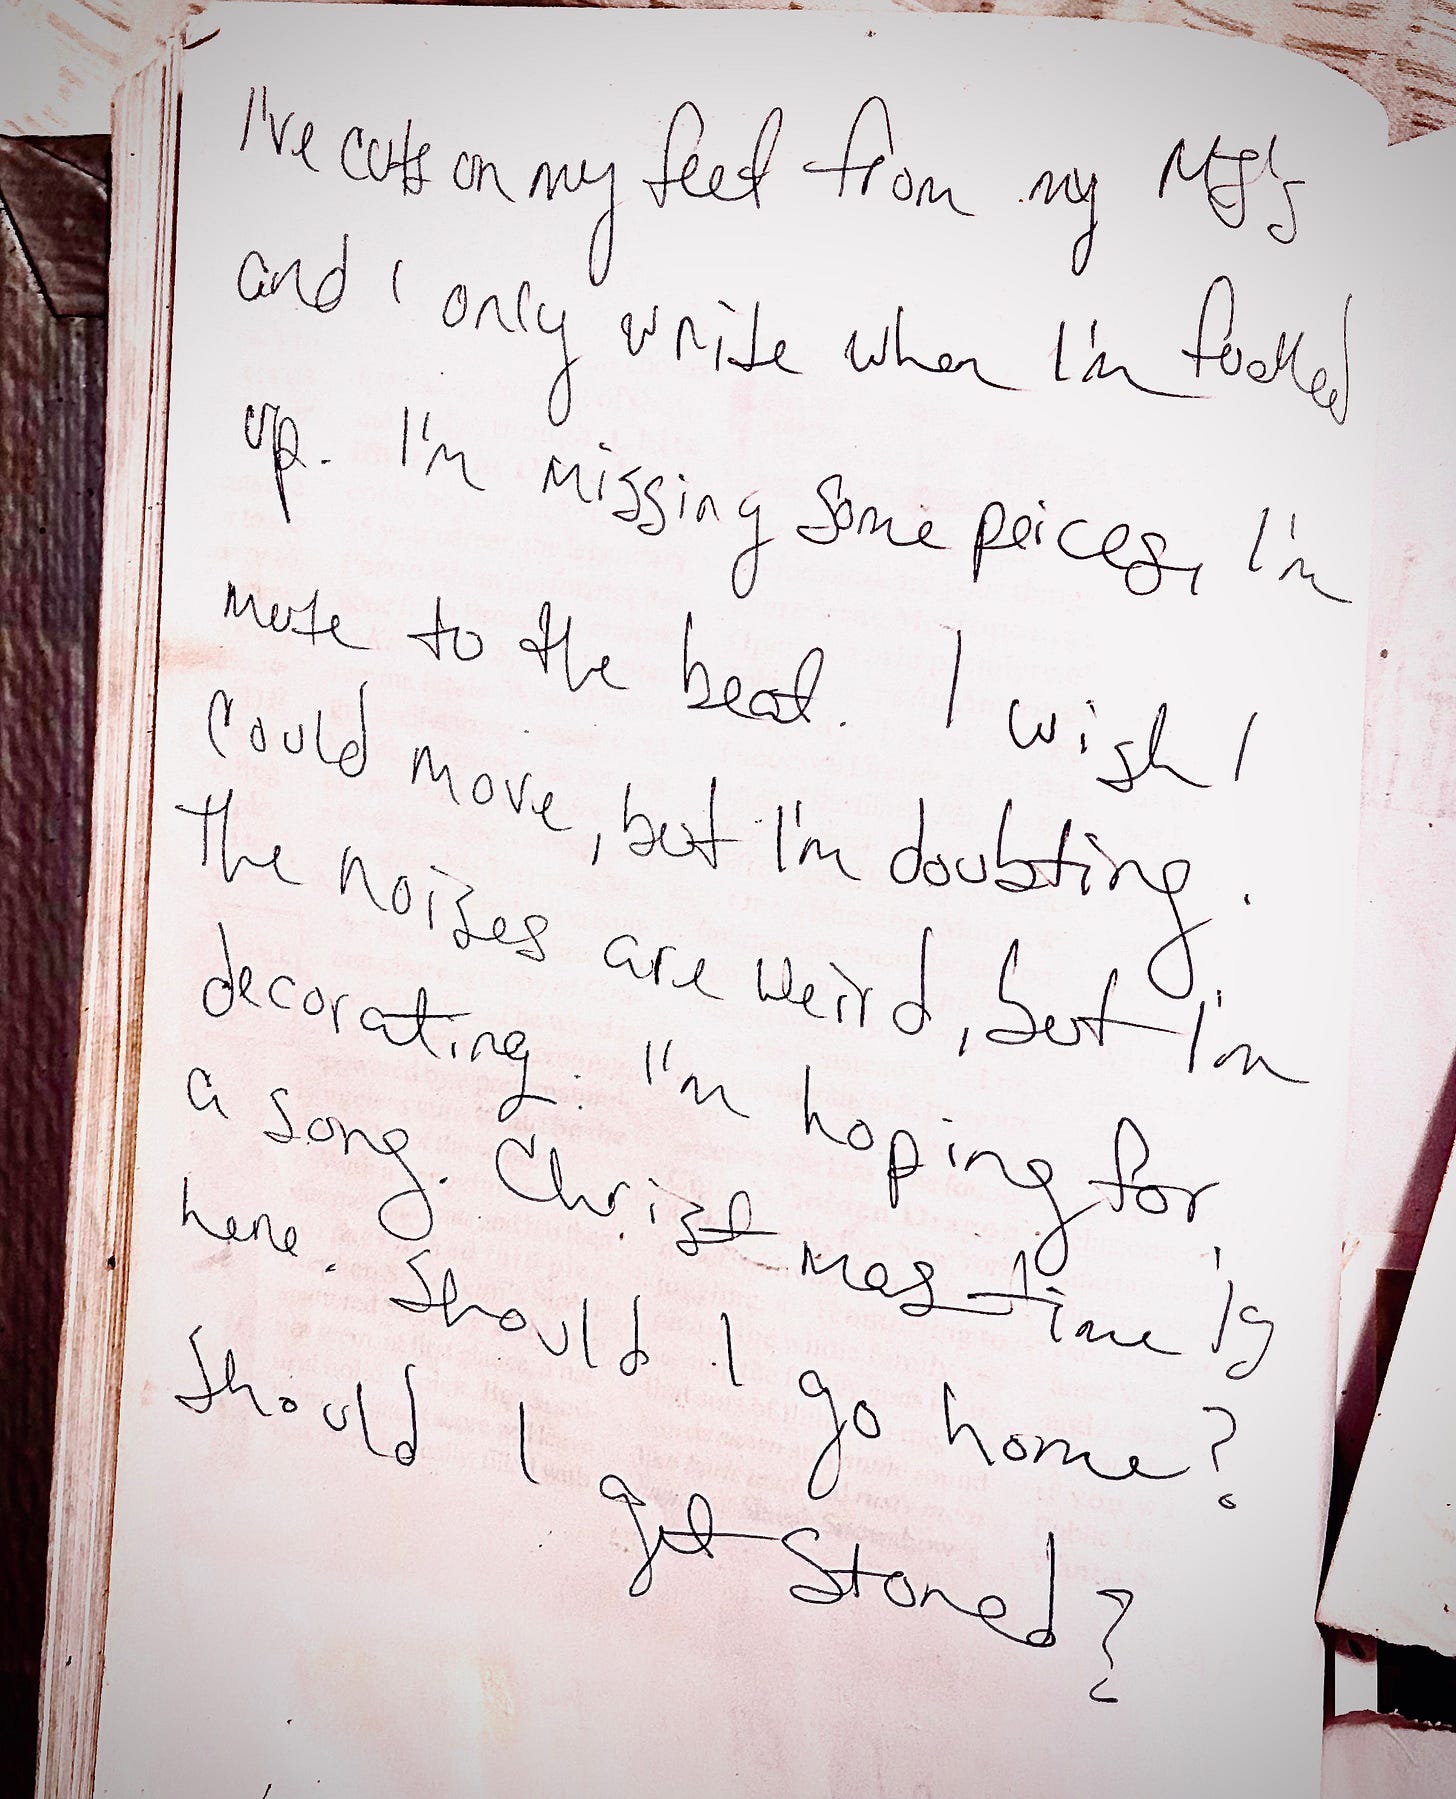 I've cuts on my feet from my MJ's
and i only write when I'm fucked
up. I'm missing some peices, I'm
mute to the beat. I wish I
could move, but I'm doubting.
The noizes are weird, but I'm
decorating. I'm hoping for
a song. Christmas time is
here. Should I go home?
Should I get stoned?